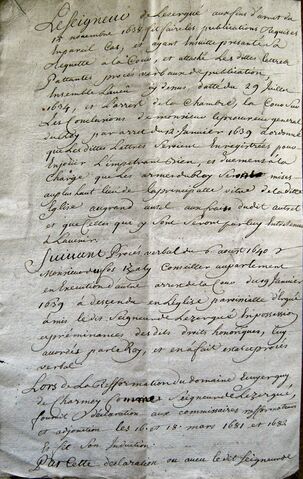 Le Seigneur de Lezergué aux fins d'arret du
novembre 1638 fit faire les publications Requises
En pareil Cas, et ayant Ensuitte presenté sa
Requette à la Cour, et attaché Les dittes lettres
Pattantes procès verbaux de publication
Ensemble L'aveu cy dessus datté du 29 Juillet
1634, et L'arrest de la Chambre, la Cour sur
Les Conclusions de monsieur le procureur general
du Roy par arret du 12 Janvier 1639 a ordonné
que Les dittes Lettres Seroient Enregistrées pour
En jouir L'impetrant Bien, et duement à la
Charge que Les armes du Roy Seront mises
au plus haut lieu de La principalle vitre de la ditte
Eglise au grand autel aux frais dudit
et que Celles qui y Sont Seront par luy Entretenues
à L'avenir.
Suivant Procès verbal du 6 aoust 1640
Monsieur Conseiller au parlement
en Execution autre arrest de la Cour du 19 Janvier
1639 a descendu en L'eglise parroissialle d'Ergué
a mis le dit Seigneur de Lezergué En possession
et prééminances des dits droits honoriques, luy
accordés par le Roy, et en a fait et
verbal
Lors de la Refformation du domaine
de Charmoy Comme Seigneur de Lezergué,
fournit Sa declaration aux commissaires refformateurs
et adjonction les 16 et 18 mars 1681 et 1682
Et fit Son Induction.
Par Cette declaration ou aveu le dit Seigneur de